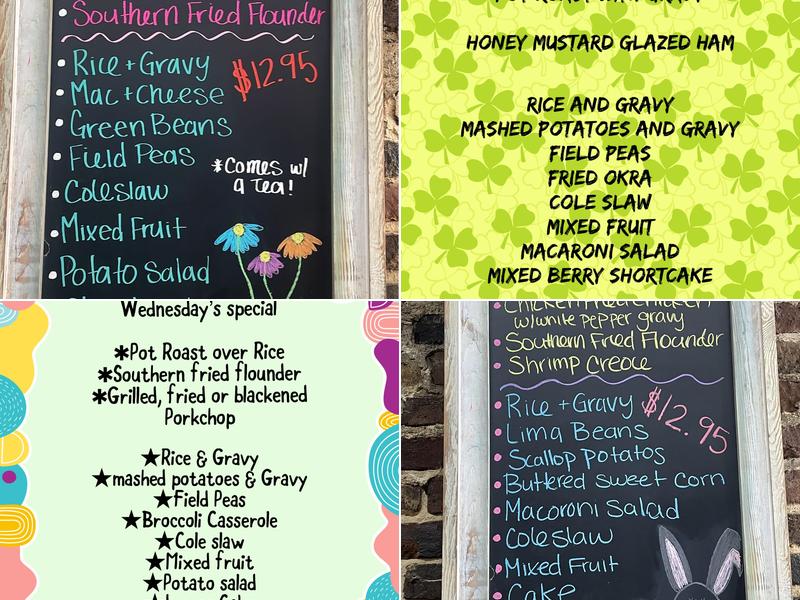 • Southern Fried Flounder
• Rice + Gravy
$12.95
• Mac + Cheese
• Green Beans
• Field Peas
*Comes w/
a Tea!
• Coleslaw
• Mixed Fruit
• Potato Salad
HONEY MUSTARD GLAZED HAM
RICE AND GRAVY
MASHED POTATOES AND GRAVY
FIELD PEAS
FRIED OKRA
COLE SLAW
MIXED FRUIT
MACARONI SALAD
MIXED BERRY SHORTCAKE
Wednesday's special
*Pot Roast over Rice
*Southern fried flounder
*Grilled, fried or blackened
Porkchop
★Rice & Gravy
★mashed potatoes & Gravy
★Field Peas
★Broccoli Casserole
★Cole slaw
★Mixed fruit
★Potato salad
• Chicken Fried Chicken
w/white pepper gravy
• Southern Fried Flounder
• Shrimp Creole
• Rice + Gravy
$12.95
• Lima Beans
• Scallop Potatos
• Buttered Sweet Corn
• Macoroni Salad
• Coleslaw
• Mixed Fruit
• Cake